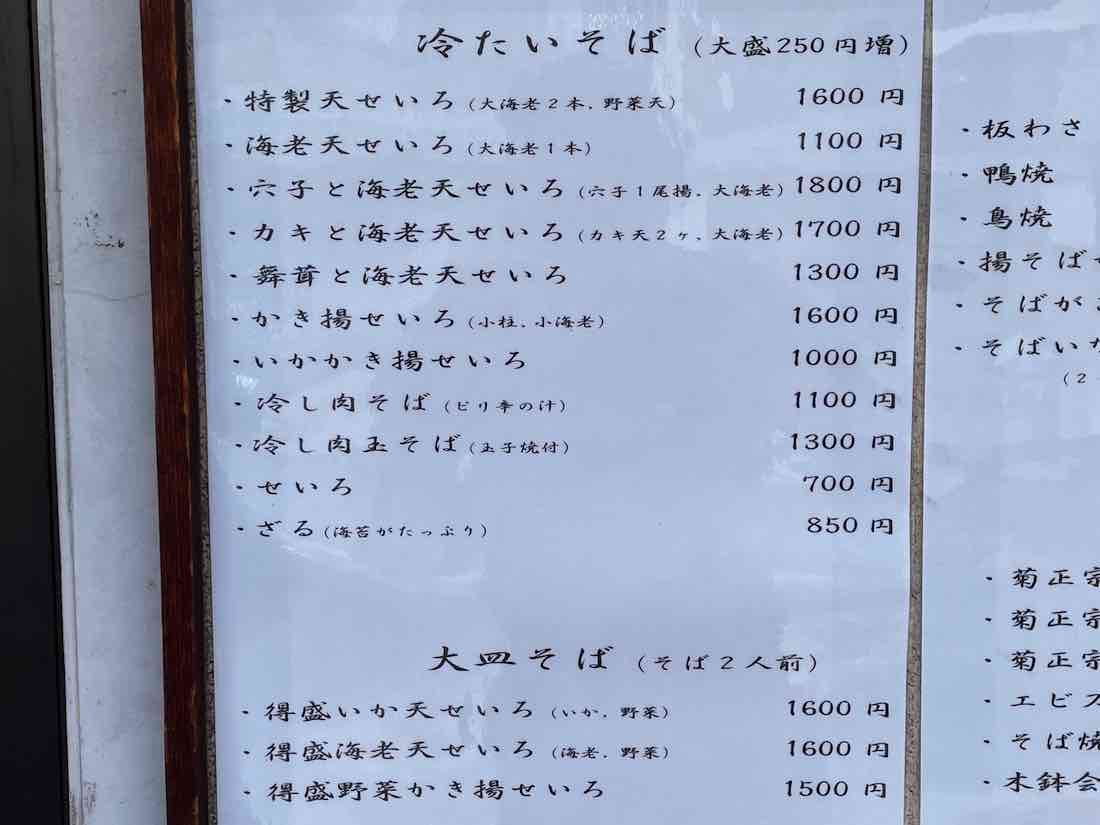 冷たいそば (大盛250円増)
・特製天せいろ(大海老2本.野菜天) 1600 円
・海老天せいろ(大海老1本) 1100 円
・穴子と海老天せいろ(穴子1尾揚.大海老) 1800 円
・カキと海老天せいろ(カキ天2ヶ.大海老) 1700 円
・舞茸と海老天せいろ 1300 円
・かき揚せいろ(小柱.小海老) 1600 円
・いかかき揚せいろ 1000 円
・冷し肉そば(ピリ辛の汁) 1100 円
・冷し肉玉そば(玉子焼付) 1300 円
・せいろ 700 円
・ざる(海苔がたっぷり) 850 円
大皿そば (そば2人前)
・得盛いか天せいろ(いか.野菜) 1600 円
・得盛海老天せいろ(海老.野菜) 1600 円
・得盛野菜かき揚せいろ 1500 円
・板わさ
・鴨焼
・鳥焼
・揚そば
・そばが
・そばい
(2
・菊正宗
・菊正宗
・菊正宗
・エビス
・そば焼
・木鉢会